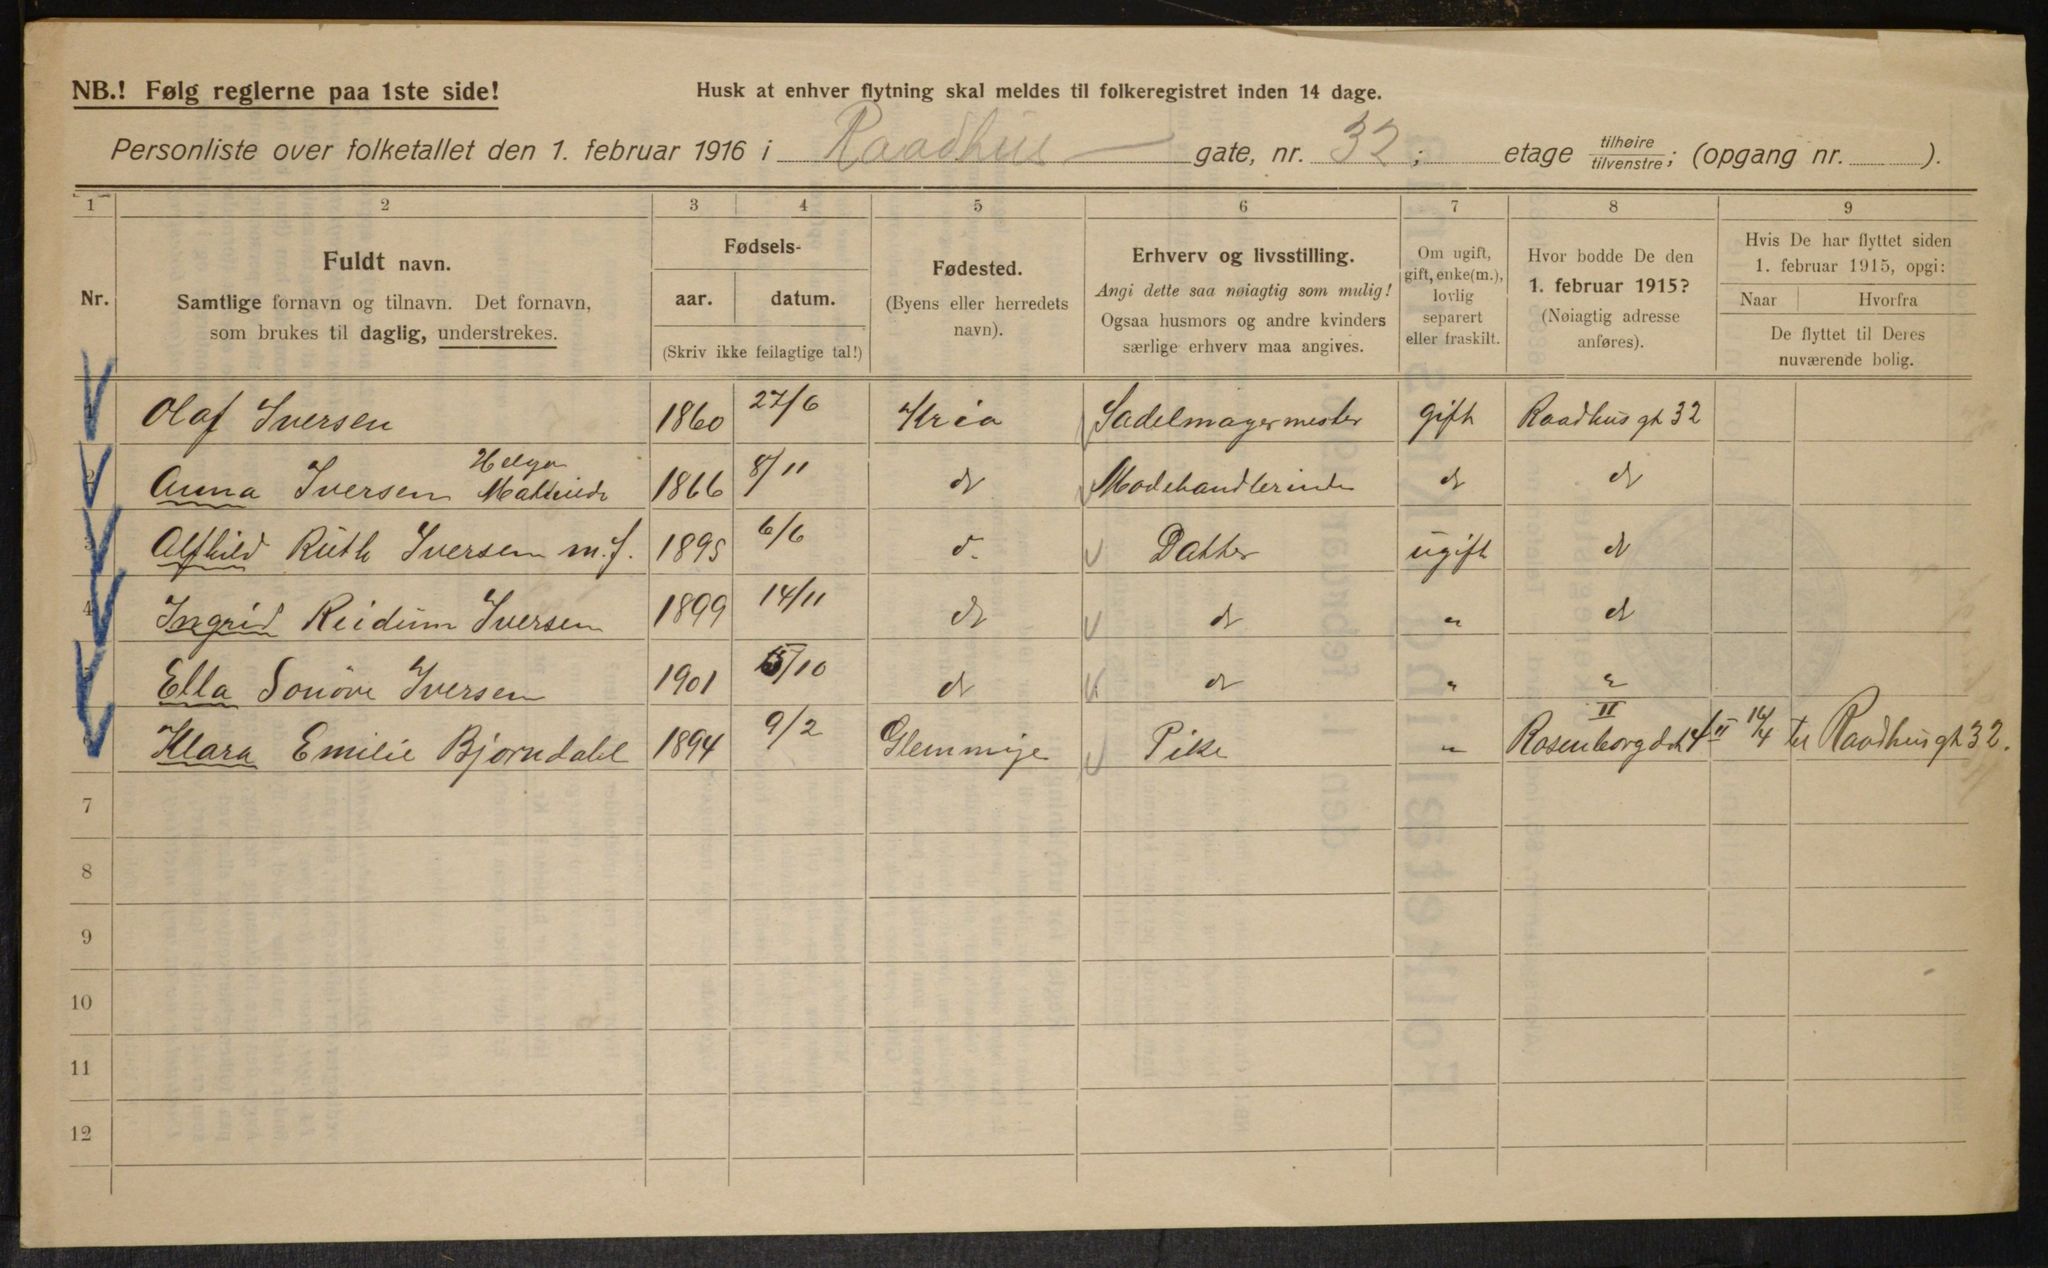 NB.! Følg reglerne paa 1ste side!
Husk at enhver flytning skal meldes til folkeregistret inden 14 dage.
Personliste over folketallet den 1. februar 1916 i Raadhus gate, nr. 32; etage tilhøire/tilvenstre; (opgang nr. ).
1 2 3 4 5 6 7 8 9
Nr.
Fuldt navn.
Samtlige fornavn og tilnavn. Det fornavn,
som brukes til daglig, understrekes.
Fødsels-
aar. datum.
(Skriv ikke feilagtige tal!)
Fødested.
(Byens eller herredets
navn).
Erhverv og livsstilling.
Angi dette saa nøiagtig som mulig!
Ogsaa husmors og andre kvinders
særlige erhverv maa angives.
Om ugift,
gift, enke(m.),
lovlig
separert
eller fraskilt.
Hvor bodde De den
1. februar 1915?
(Nøiagtig adresse
anføres).
Hvis De har flyttet siden
1. februar 1915, opgi:
Naar Hvorfra
De flyttet til Deres
nuværende bolig.
1 Olaf Iversen 1860 27/6 Kria Sadelmagermester gift Raadhusgt 32
Helga
2 Anna Iversen Mathilde 1866 8/11 do Modehandlerinde do do
3 Alfhild Ruth Iversen m.f. 1895 6/6 d. Datter ugift do
4 Ingrid Reidun Iversen 1899 14/11 do do " do
5 Ella Sonøve Iversen 1901 15/10 do do " "
6 Klara Emilie Bjørndahl 1894 9/2 Glemminge Pike " Rosenborggt 4 II 16/4 til Raadhusgt 32.
7
8
9
10
11
12